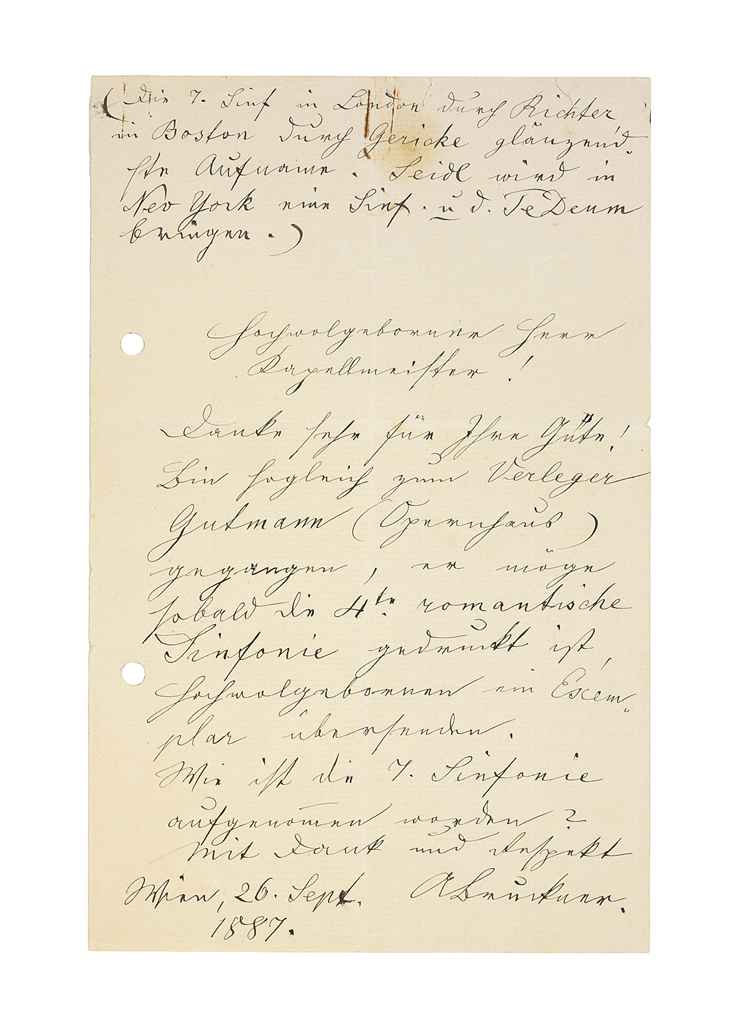 (Die 7. Sinf in London durch Richter
in Boston durch Gericke glänzend-
ste Aufname. Seidl wird in
New York eine Sinf. u d. TeDeum
bringen.)
Hochwolgeborner Herr
Kapellmeister!
Danke sehr für Ihre Güte!
Bin sogleich zum Verleger
Gutmann (Opernhaus)
gegangen, er möge
sobald die 4te romantische
Sinfonie gedruckt ist,
Hochwolgebornen ein Exem-
plar übersenden.
Wie ist die 7. Sinfonie
aufgenom̄en worden?
Mit Dank und Respekt
Wien, 26. Sept. ABruckner.
1887.